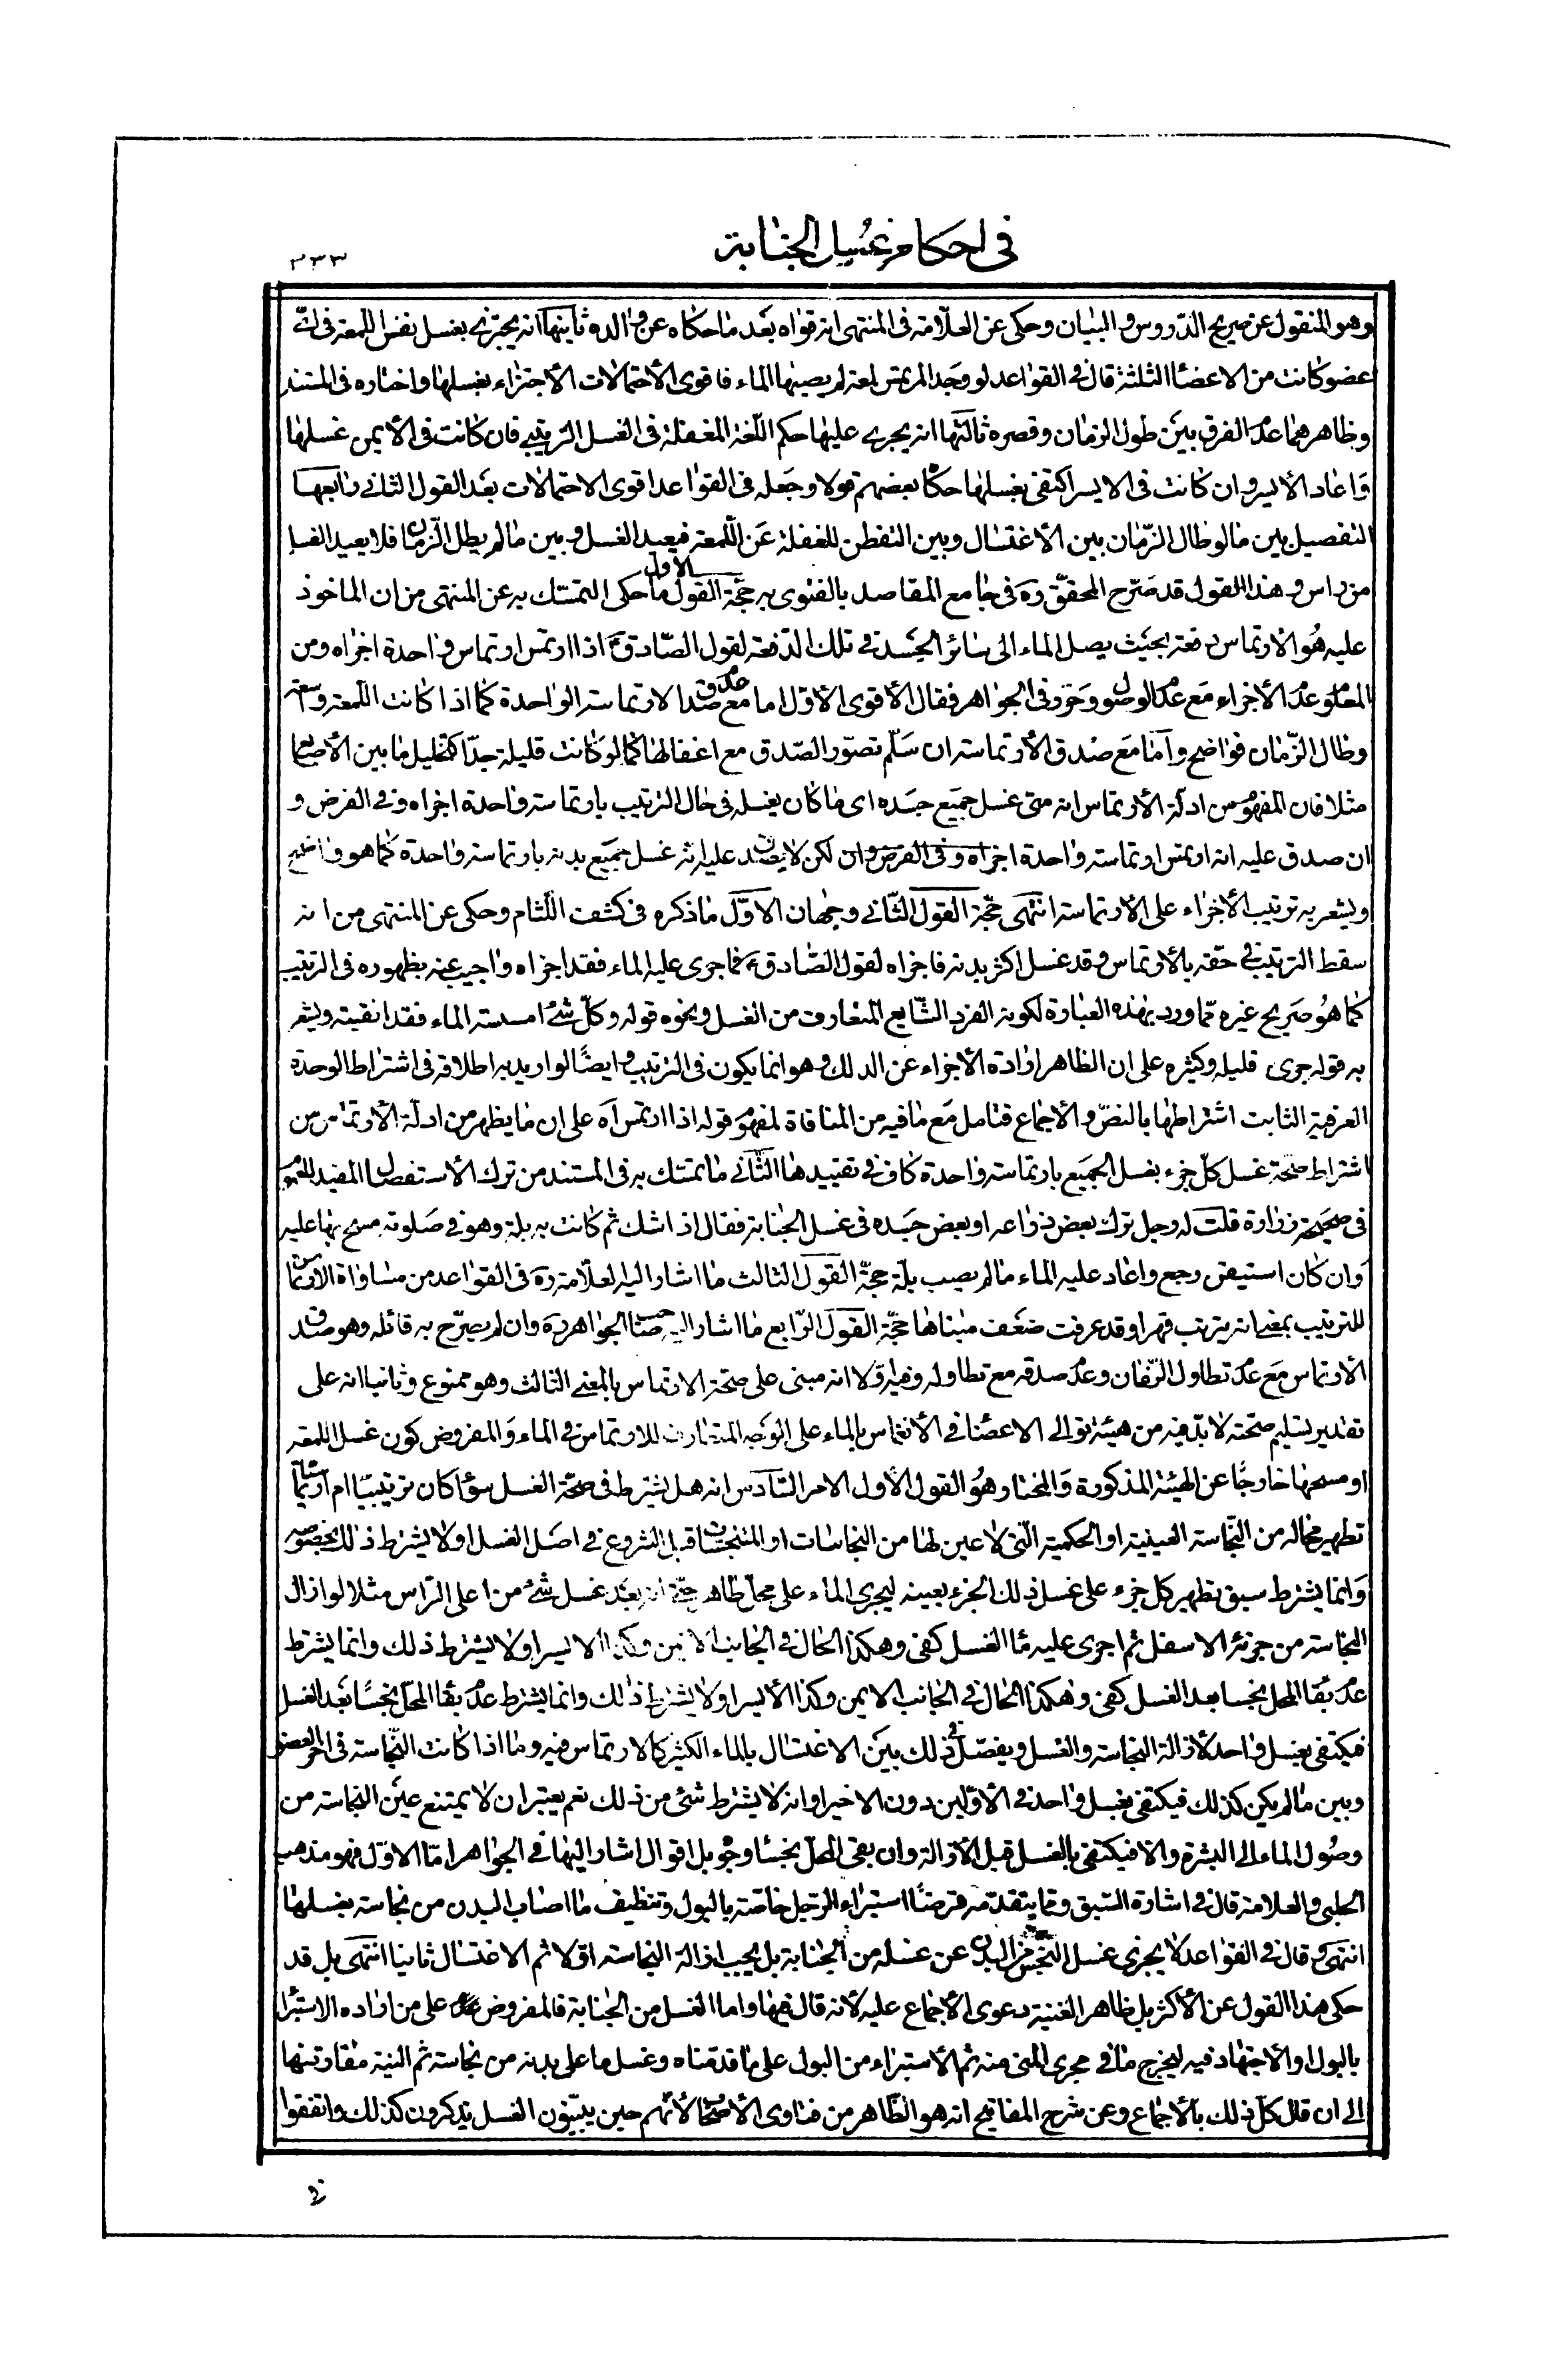 في احكام غسل الجنابة
٣٣٣
وهو المنقول عن صريح الدّروس والبيان وحكى عن العلّامة في المنتهى انه قواه بعد ما حكاه عن والده ثانيها انه يجتزي بغسل نفس اللمعة في اىّ
عضو كانت من الاعضاء الثلثة قال في القواعد لو وجد المرتمس لمعة لم يصبها الماء فاقوى الاحتمالات الاجتزاء بغسلها واختاره في المستند
وظاهرهما عدم الفرق بين طول الزمان وقصره ثالثها انه يجرى عليها حكم اللمعة المغفلة في الغسل الترتيبي فان كانت في الأيمن غسلها
واعاد الأيسر وان كانت في الايسر اكتفى بغسلها حكاه بعضهم قولا وجعله في القواعد اقوى الاحتمالات بعد القول الثاني رابعها
التفصيل بين ما لو طال الزّمان بين الأغتسال وبين التفطن للغفلة عن اللّمعة فيعيد الغسل وبين ما لم يطل الزّمان فلا يعيد الغسل
من راس وهذا القول قد صرّح المحقّق ره في جامع المقاصد بالفتوى به حجّة القول الاول ما حكى التمسّك به عن المنتهى من ان الماخوذ
عليه هو الارتماس دفعة بحيث يصل الماء الى سائر الجسد في تلك الدّفعة لقول الصّادق ع اذا ارتمس ارتماسة واحدة اجزاه ومن
المعلوم عدم الأجزاء مع عدم الوصول وجوّد في الجواهر فقال الأقوى الأوّل اما مع عدم صدق الارتماسة الواحدة كما اذا كانت اللّمعة وسعة
وطال الزّمان فواضح وامّا مع صدق الأرتماسة ان سلّم تصوّر الصّدق مع اغفالها كما لو كانت قليلة جدّا كتخليل ما بين الأصابع
مثلا فان المفهوم من ادلّة الأرتماس انه متى غسل جميع جسده اى ما كان يغسله في حال الترتيب بارتماسة واحدة اجزاه وفي الفرض و
ان صدق عليه انه ارتمس ارتماسة واحدة اجزاه وفي الفرض وان لكن لا يصدق عليه انه غسل جميع بدنه بارتماسة واحدة كما هو واضح
ويشعر به ترتيب الأجزاء على الأرتماسة انتهى حجّة القول الثّاني وجهان الاوّل ما ذكره في كشف اللّثام وحكى عن المنتهى من انه
سقط الترتيب في حقّه بالأرتماس وقد غسل اكثر بدنه فاجزاه لقول الصّادق ع فما جرى عليه الماء فقد اجزاه واجيب عنه بظهوره في الترتيب
كما هو صريح غيره ممّا ورد بهذه العبارة لكونه الفرد الشّايع المتعارف من الغسل ونحوه قوله وكلّ شئ امسسته الماء فقد انقيته ويشعر
به قوله جرى قليله وكثيره على ان الظاهر ارادة الأجزاء عن الدلك وهو انما يكون في الترتيب وايضًا لو اريد به اطلاقه في اشتراط الوحدة
العرفية الثابت اشتراطها بالنصّ والأجماع فتامل مع ما فيه من المنافاة لمفهوم قوله اذا ارتمس آه على ان ما يظهر من ادلّة الأرتماس من
اشتراط صحّة غسل كلّ جزء بغسل الجميع بارتماسة واحدة كاف في تقييدها الثّاني ما تمسّك به في المستند من ترك الأستفصال المفيد للعموم
في صحيحة زرارة قلت له رجل ترك بعض ذراعه او بعض جسده في غسل الجنابة فقال اذا شك ثم كانت به بلة وهو في صلوته مسح بها عليه
وان كان استيقن رجع واعاد عليه الماء ما لم يصب بلّة حجّة القول الثالث ما اشار اليه العلّامة ره في القواعد من مساواة الأرتماس
للترتيب بمعنى انه يترتب قهرا وقد عرفت ضعف مبناها حجّة القول الرّابع ما اشار اليه صاحب الجواهر ره وان لم يصرّح به قائله وهو صدق
الأرتماس مع عدم تطاول الزّمان وعدم صدقه مع تطاوله وفيه اوّلا انه مبنى على صحّة الارتماس بالمعنى الثالث وهو ممنوع وثانيا انه على
تقدير تسليم صحّته لا بدّ فيه من هيئة توالي الاعضاء في الأنغماس بالماء على الوجه المتعارف للارتماس في الماء والمفروض كون غسل اللمعة
او مسحها خارجًا عن الهيئة المذكورة والمختار هو القول الأول الامر السّادس انه هل يشترط في صحّة الغسل سواء كان ترتيبيّا ام ارتماسيّا
تطهير محاله من النّجاسة العينية او الحكمية الّتي لا عين لها من النجاسات او المتنجسات قبل الشروع في اصل الغسل او لا يشترط ذلك بخصوصه
وانما يشترط سبق تطهير كل جزء على غسل ذلك الجزء بعينه ليجرى الماء على محل طاهر حتى انه بعد غسل شئ من اعلى الرّاس مثلا لو ازال
النجاسة من جزئه الاسفل ثم اجرى عليه ماء الغسل كفى وهكذا الحال في الجانب الايمن وكذا الايسر او لا يشترط ذلك وانما يشترط
عدم بقاء المحل نجسا بعد الغسل كفى وهكذا الحال في الجانب الايمن وكذا الأيسر او لا يشترط ذلك وانما يشترط عدم بقاء المحلّ نجسًا بعد الغسل
فيكتفى بغسل واحد لأزالة النجاسة والغسل ويفصّل في ذلك بين الاغتسال بالماء الكثير كالارتماس فيه وما اذا كانت النّجاسة في اخر العضو
وبين ما لم يكن كذلك فيكتفى بغسل واحد في الأوّلين دون الاخير او انه لا يشترط شئ من ذلك نعم يعتبر ان لا يمتنع عين النجاسة من
وصول الماء الى البشرة والا فيكتفى بالغسل قبل الأزالة وان بقى المحلّ نجسًا وجوه بل اقوال اشار اليها في الجواهر امّا الاوّل فهو مذهب
الحلبي والعلامة قال في اشارة السّبق وما يتقدّمه فرضًا استبراء الرّجل خاصّة بالبول وتنظيف ما اصاب البدن من نجاسة بغسلها
انتهى وقال في القواعد لا يجزى غسل النجس من البدن عن غسله من الجنابة بل يجب ازالة النجاسة اوّلا ثم الاغتسال ثانيا انتهى بل قد
حكى هذا القول عن الأكثر بل ظاهر الغنية دعوى الأجماع عليه لأنه قال فيها واما الغسل من الجنابة فالمفروض على من اراده الاستبراء
بالبول او الاجتهاد فيه ليخرج ما في مجرى المنى منه ثم الأستبراء من البول على ما قدمناه وغسل ما على بدنه من نجاسة ثم النية مقارنتها
الى ان قال كلّ ذلك بالأجماع وعن شرح المفاتيح انه هو الظّاهر من فتاوى الأصحاب لأنّهم حين يبيّنون الغسل يذكرون كذلك واتفقوا
في